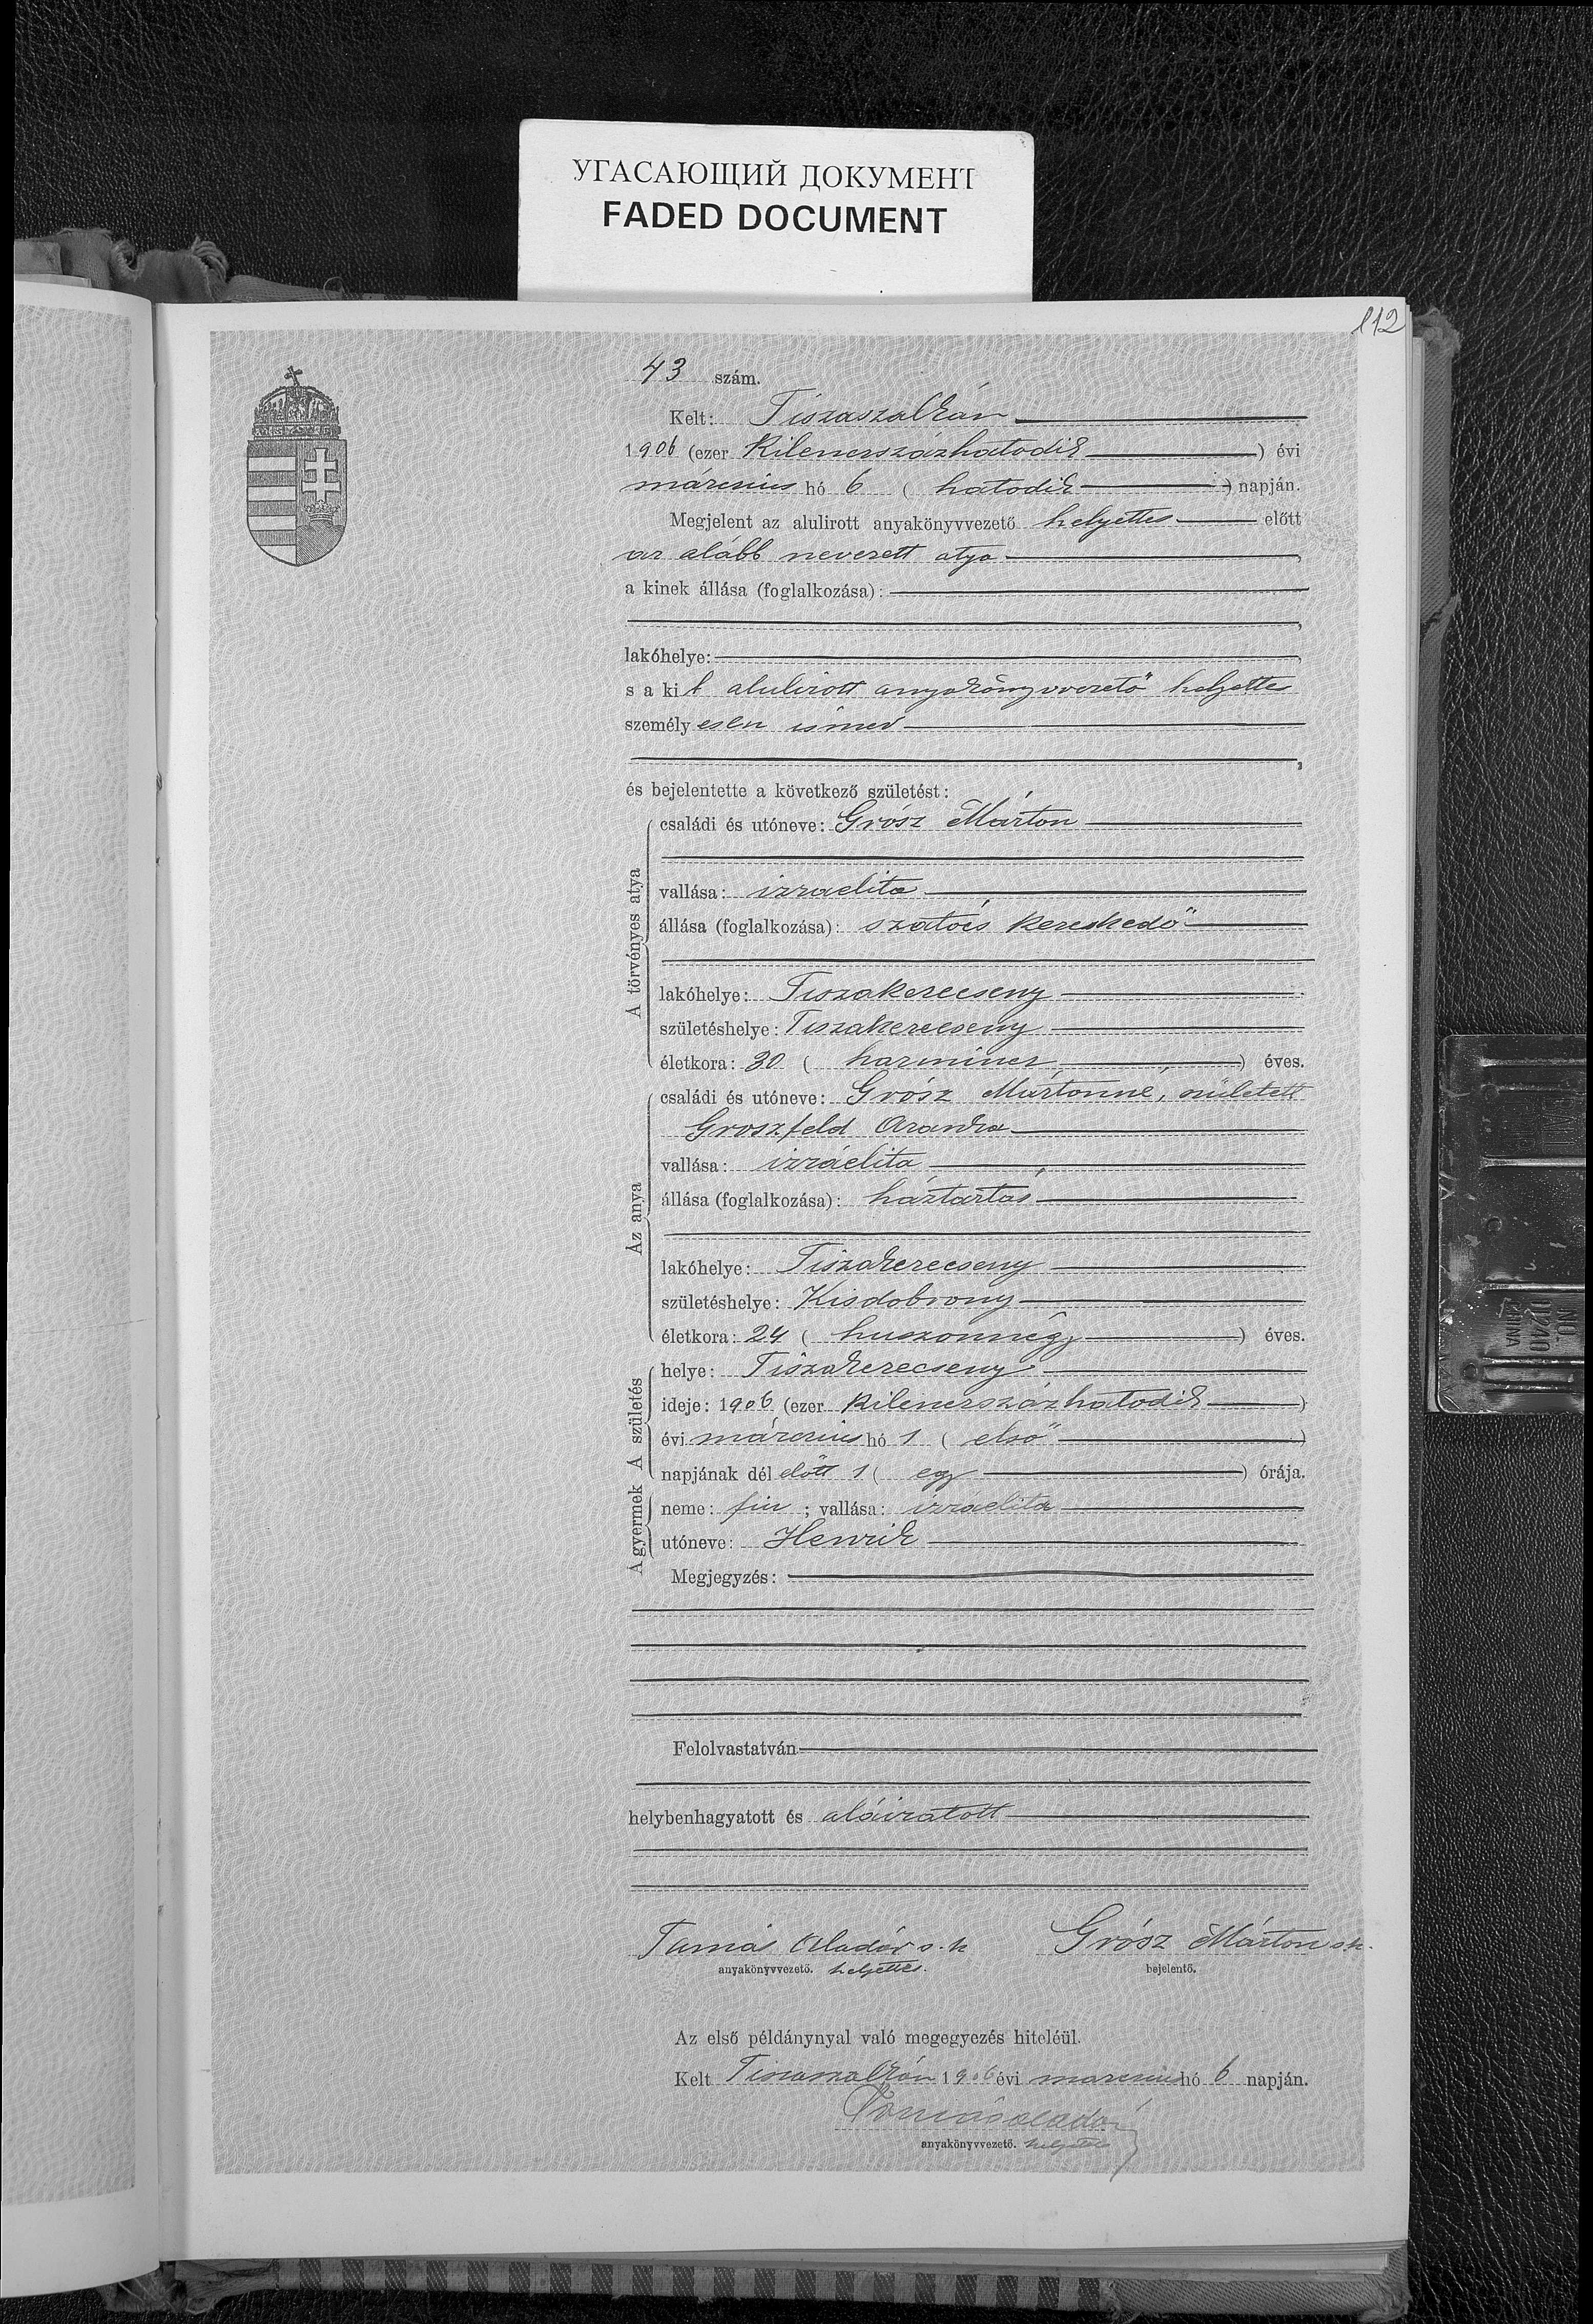 УГАСАЮЩИЙ ДОКУМЕНТ
FADED DOCUMENT
112
43 szám.
Kelt: Tiszaszalkán
1906 (ezer kilenczszázhatodik ) évi
márczius hó 6 ( hatodik ) napján.
Megjelent az alulirott anyakönyvvezető helyettes előtt
az alább nevezett atya
a kinek állása (foglalkozása):
lakóhelye:
s a kit alulirott anyakönyvvezető helyettes
személyesen ismer
és bejelentette a következő születést:
A törvényes atya
családi és utóneve: Grósz Márton
vallása: izraelita
állása (foglalkozása): szatócs kereskedő
lakóhelye: Tiszakerecseny
születéshelye: Tiszakerecseny
életkora: 30 ( harmincz ) éves.
Az anya
családi és utóneve: Grósz Mártonné, született
Groszfeld Aranka
vallása: izráelita
állása (foglalkozása): háztartás
lakóhelye: Tiszakerecseny
születéshelye: Kisdobrony
életkora: 24 ( huszonnégy ) éves.
A születés
helye: Tiszakerecseny
ideje: 1906 (ezer kilenczszázhatodik )
évi márczius hó 1 ( első )
napjának dél előtt 1 ( egy ) órája.
A gyermek
neme: fiu ; vallása: izraelita
utóneve: Henrik
Megjegyzés:
Felolvastatván
helybenhagyatott és aláiratott
Tamás Aladár s. k Grósz Márton s k.
anyakönyvvezető. helyettes. bejelentő.
Az első példánynyal való megegyezés hiteléül.
Kelt Tiszaszalkán 1906 évi marczius hó 6 napján.
Tamás Aladár
anyakönyvvezető. helyettes
NO.
0240